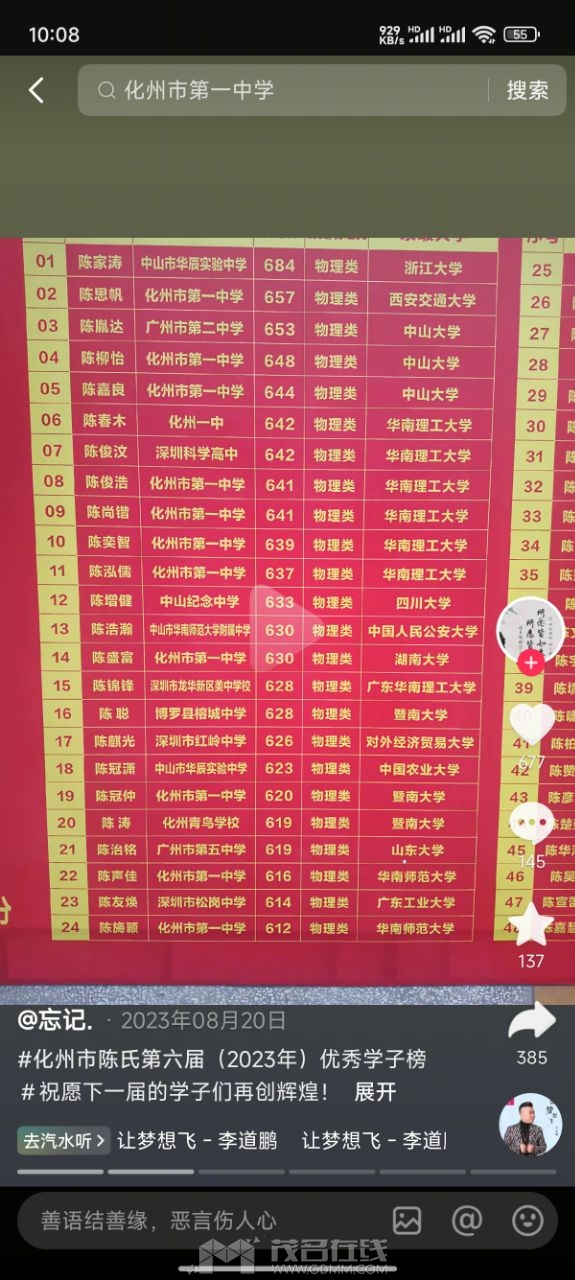 10:08
929 KB/s HD HD 55
化州市第一中学 搜索
01 陈家涛 中山市华辰实验中学 684 物理类 浙江大学 25
02 陈思帆 化州市第一中学 657 物理类 西安交通大学 26
03 陈胤达 广州市第二中学 653 物理类 中山大学 27
04 陈柳怡 化州市第一中学 648 物理类 中山大学 28
05 陈嘉良 化州市第一中学 644 物理类 中山大学 29
06 陈春木 化州一中 642 物理类 华南理工大学 30
07 陈俊汶 深圳科学高中 642 物理类 华南理工大学 31
08 陈俊浩 化州市第一中学 641 物理类 华南理工大学 32
09 陈尚锴 化州市第一中学 641 物理类 华南理工大学 33
10 陈奕智 化州市第一中学 639 物理类 华南理工大学 34
11 陈泓儒 化州市第一中学 637 物理类 华南理工大学 35
12 陈增健 中山纪念中学 633 物理类 四川大学
13 陈浩瀚 中山市华南师范大学附属中学 630 物理类 中国人民公安大学
14 陈盛富 化州市第一中学 630 物理类 湖南大学
15 陈锦锋 深圳市龙华新区美中学校 628 物理类 广东华南理工大学 39
16 陈 聪 博罗县榕城中学 628 物理类 暨南大学 40
17 陈麒光 深圳市红岭中学 626 物理类 对外经济贸易大学 41 陈柏
18 陈冠潇 中山市华辰实验中学 623 物理类 中国农业大学 42 陈赞
19 陈冠仲 化州市第一中学 620 物理类 暨南大学 43 陈彦
20 陈 涛 化州青鸟学校 619 物理类 暨南大学 陈楚
21 陈治铭 广州市第五中学 619 物理类 山东大学 45 陈华
22 陈声佳 化州市第一中学 616 物理类 华南师范大学 46 陈昊
23 陈友焕 深圳市松岗中学 614 物理类 广东工业大学 47 陈宣
24 陈旖颖 化州市第一中学 612 物理类 华南师范大学 48 陈嘉慧
份
所念皆如
所愿皆
677
145
137
385
@忘记. · 2023年08月20日
#化州市陈氏第六届（2023年）优秀学子榜
# 祝愿下一届的学子们再创辉煌！ 展开
去汽水听 > 让梦想飞 - 李道鹏 让梦想飞 - 李道
善语结善缘，恶言伤人心
茂名在线
WWW.GDMM.COM